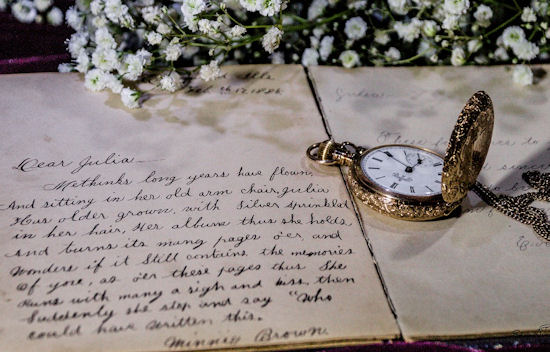 Dear Julia
Methinks long years have flown,
And sitting in her old arm chair, Julia
Has older grown, with Silver Sprinkled
in her hair, Her album thus she holds
And turns its many pages o'er, and
Wonders if it Still contains the memories
Of yore, as o'er these pages thus She
Runs with many a sigh and kiss, then
Suddenly she stop and say "Who
could have Written this.
Minnie Brown
Julia